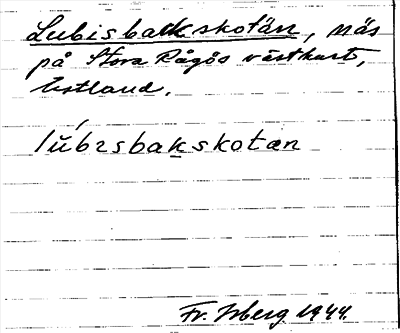 Lubisbackskotän, näs
på Stora Rågös västkust,
Estland.
lŭ́bɪsbakskotæn
Fr. Isberg 1944.